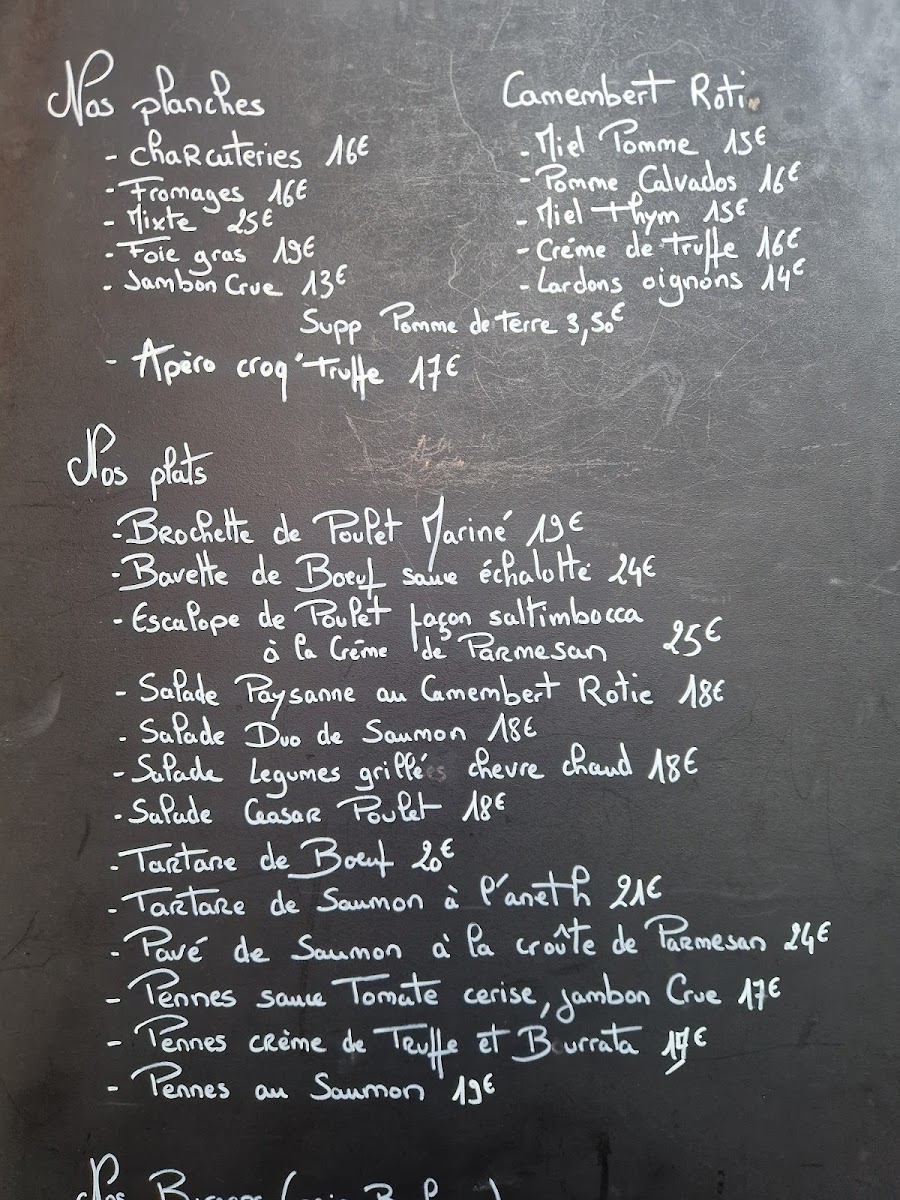 Nos planches
- Charcuteries 16€
- Fromages 16€
- Mixte 25€
- Foie gras 19€
- Jambon Crue 13€
Camembert Roti
- Miel Pomme 15€
- Pomme Calvados 16€
- Miel thym 15€
- Créme de truffe 16€
- Lardons oignons 14€
Supp Pomme de terre 3,50€
- Apéro croq'truffe 17€
Nos plats
- Brochette de Poulet Mariné 19€
- Bavette de Boeuf sauce échalotte 24€
- Escalope de Poulet façon saltimbocca
à la Crème de Parmesan 25€
- Salade Paysanne au Camembert Rotie 18€
- Salade Duo de Saumon 18€
- Salade Legumes grillées chevre chaud 18€
- Salade Ceasar Poulet 18€
- Tartare de Boeuf 20€
- Tartare de Saumon à l'aneth 21€
- Pavé de Saumon à la croûte de Parmesan 24€
- Pennes sauce Tomate cerise, jambon Crue 17€
- Pennes crème de Truffe et Burrata
- Pennes au Saumon 19€
Nos